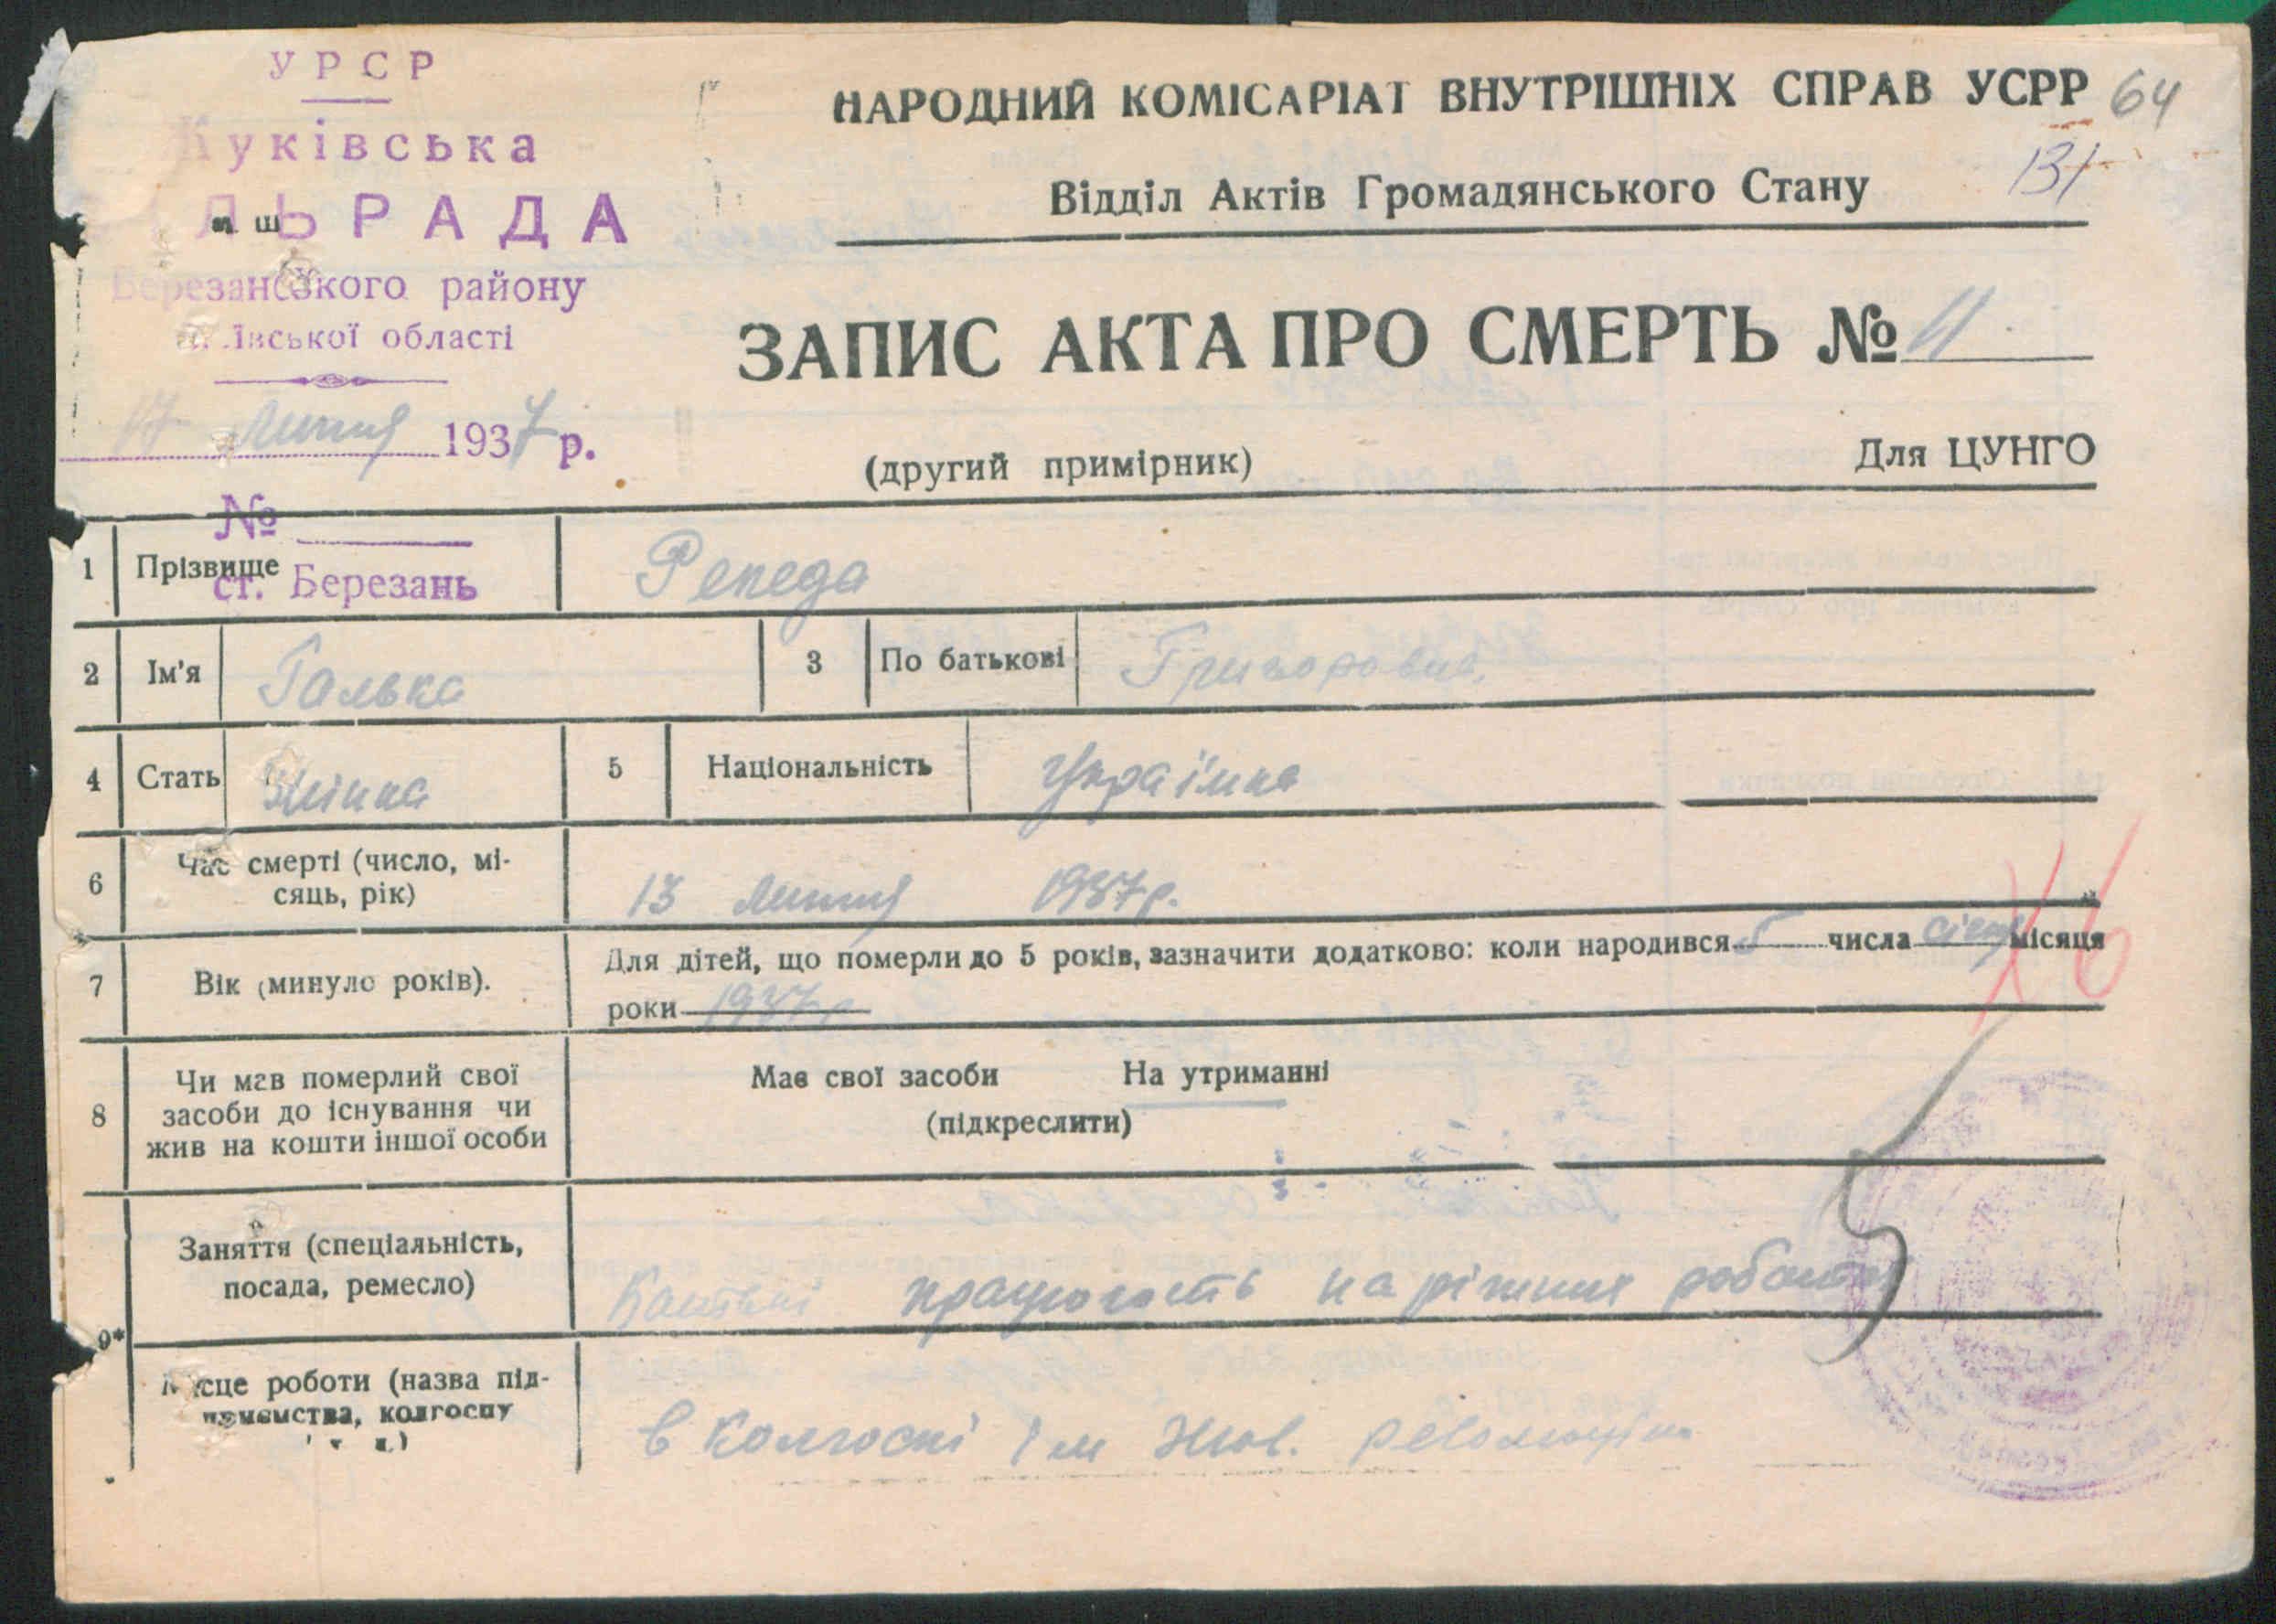 УРСР
Жуківська
ЛЬРАДА
Березанського району
ївської області
17 липня 1937 р.
№
ст. Березань
НАРОДНИЙ КОМІСАРІАТ ВНУТРІШНІХ СПРАВ УСРР 64
131
Відділ Актів Громадянського Стану
ЗАПИС АКТА ПРО СМЕРТЬ № 11
(другий примірник) Для ЦУНГО
1 Прізвище Репеда
2 Ім'я Галька 3 По батькові Григоровна
4 Стать Жінка 5 Національність Українка
6 Час смерті (число, мі-
сяць, рік) 13 липня 1937 р.
7 Вік (минуло років). Для дітей, що померли до 5 років, зазначити додатково: коли народився 5 числа січня місяця
роки 1937 р
8 Чи мав померлий свої
засоби до існування чи
жив на кошти іншої особи
Має свої засоби На утриманні
(підкреслити)
9* Заняття (спеціальність,
посада, ремесло) Батьки працюють на ріжних роботах
Місце роботи (назва під-
приємства, колгоспу
в колгоспі Ім Жов. революції